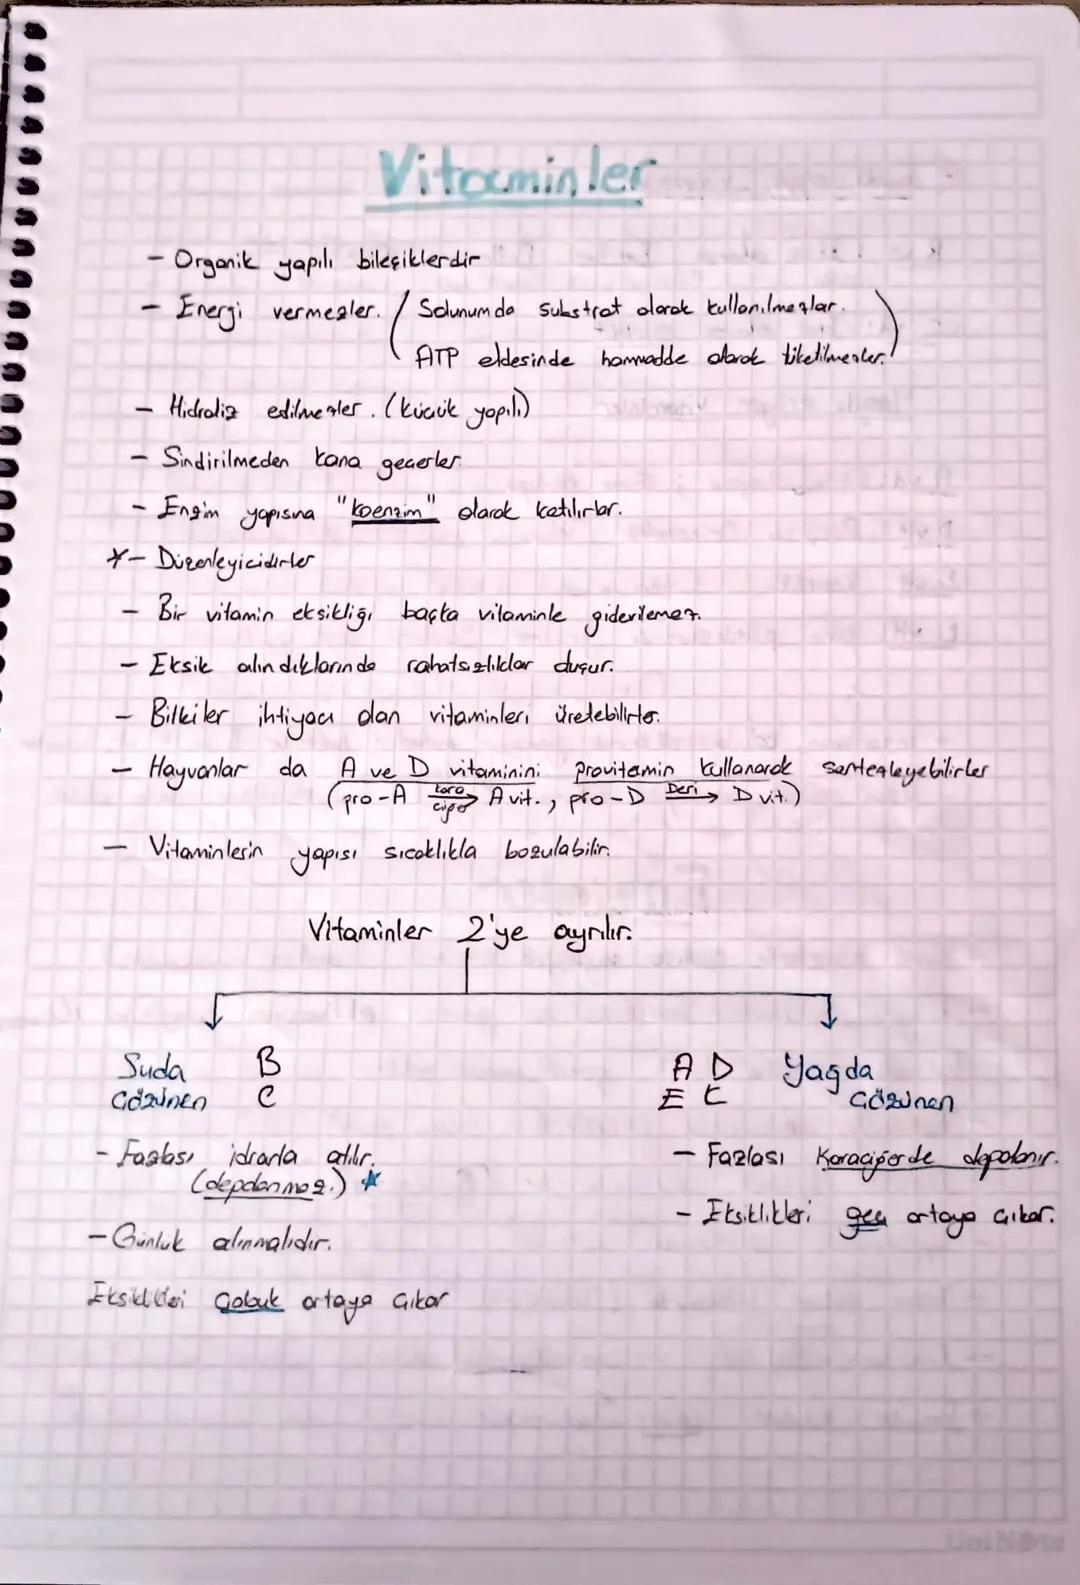 Vitaminler
- Organik yapılı bileşiklerdir
- Energi vermezler. (Solunumda substrat olarak kullanılmazlar.
ATP eldesinde hammadde olarak tüketilmezler.)
- Hidroliz edilmezler. (küçük yapılı)
- Sindirilmeden kana geçerler.
- Enzim yapısına "koenzim" olarak katılırlar.
*- Düzenleyicidirler
- Bir vitamin eksikliği başka vitaminle giderilemez.
- Eksik alındıklarında rahatsızlıklar duşur.
- Bitkiler ihtiyacı olan vitaminleri üretebilirler.
- Hayvanlar da A ve D vitaminini provitamin kullanarak sentezleyebilirler
(pro-A kara ciğer → A vit., pro-D Deri → D vit.)
- Vitaminlerin yapısı sıcaklıkla bozulabilir.
Vitaminler 2'ye ayrılır.
Suda B
çözünen C
- Fazlası idrarla atılır.
(depolanmaz.) *
- Günlük alınmalıdır.
Eksiklikleri çabuk ortaya çıkar
A D Yağda
E K çözünen
- Fazlası karaciğerde depolanır.
- Eksiklikleri geç ortaya çıkar.
UniNote